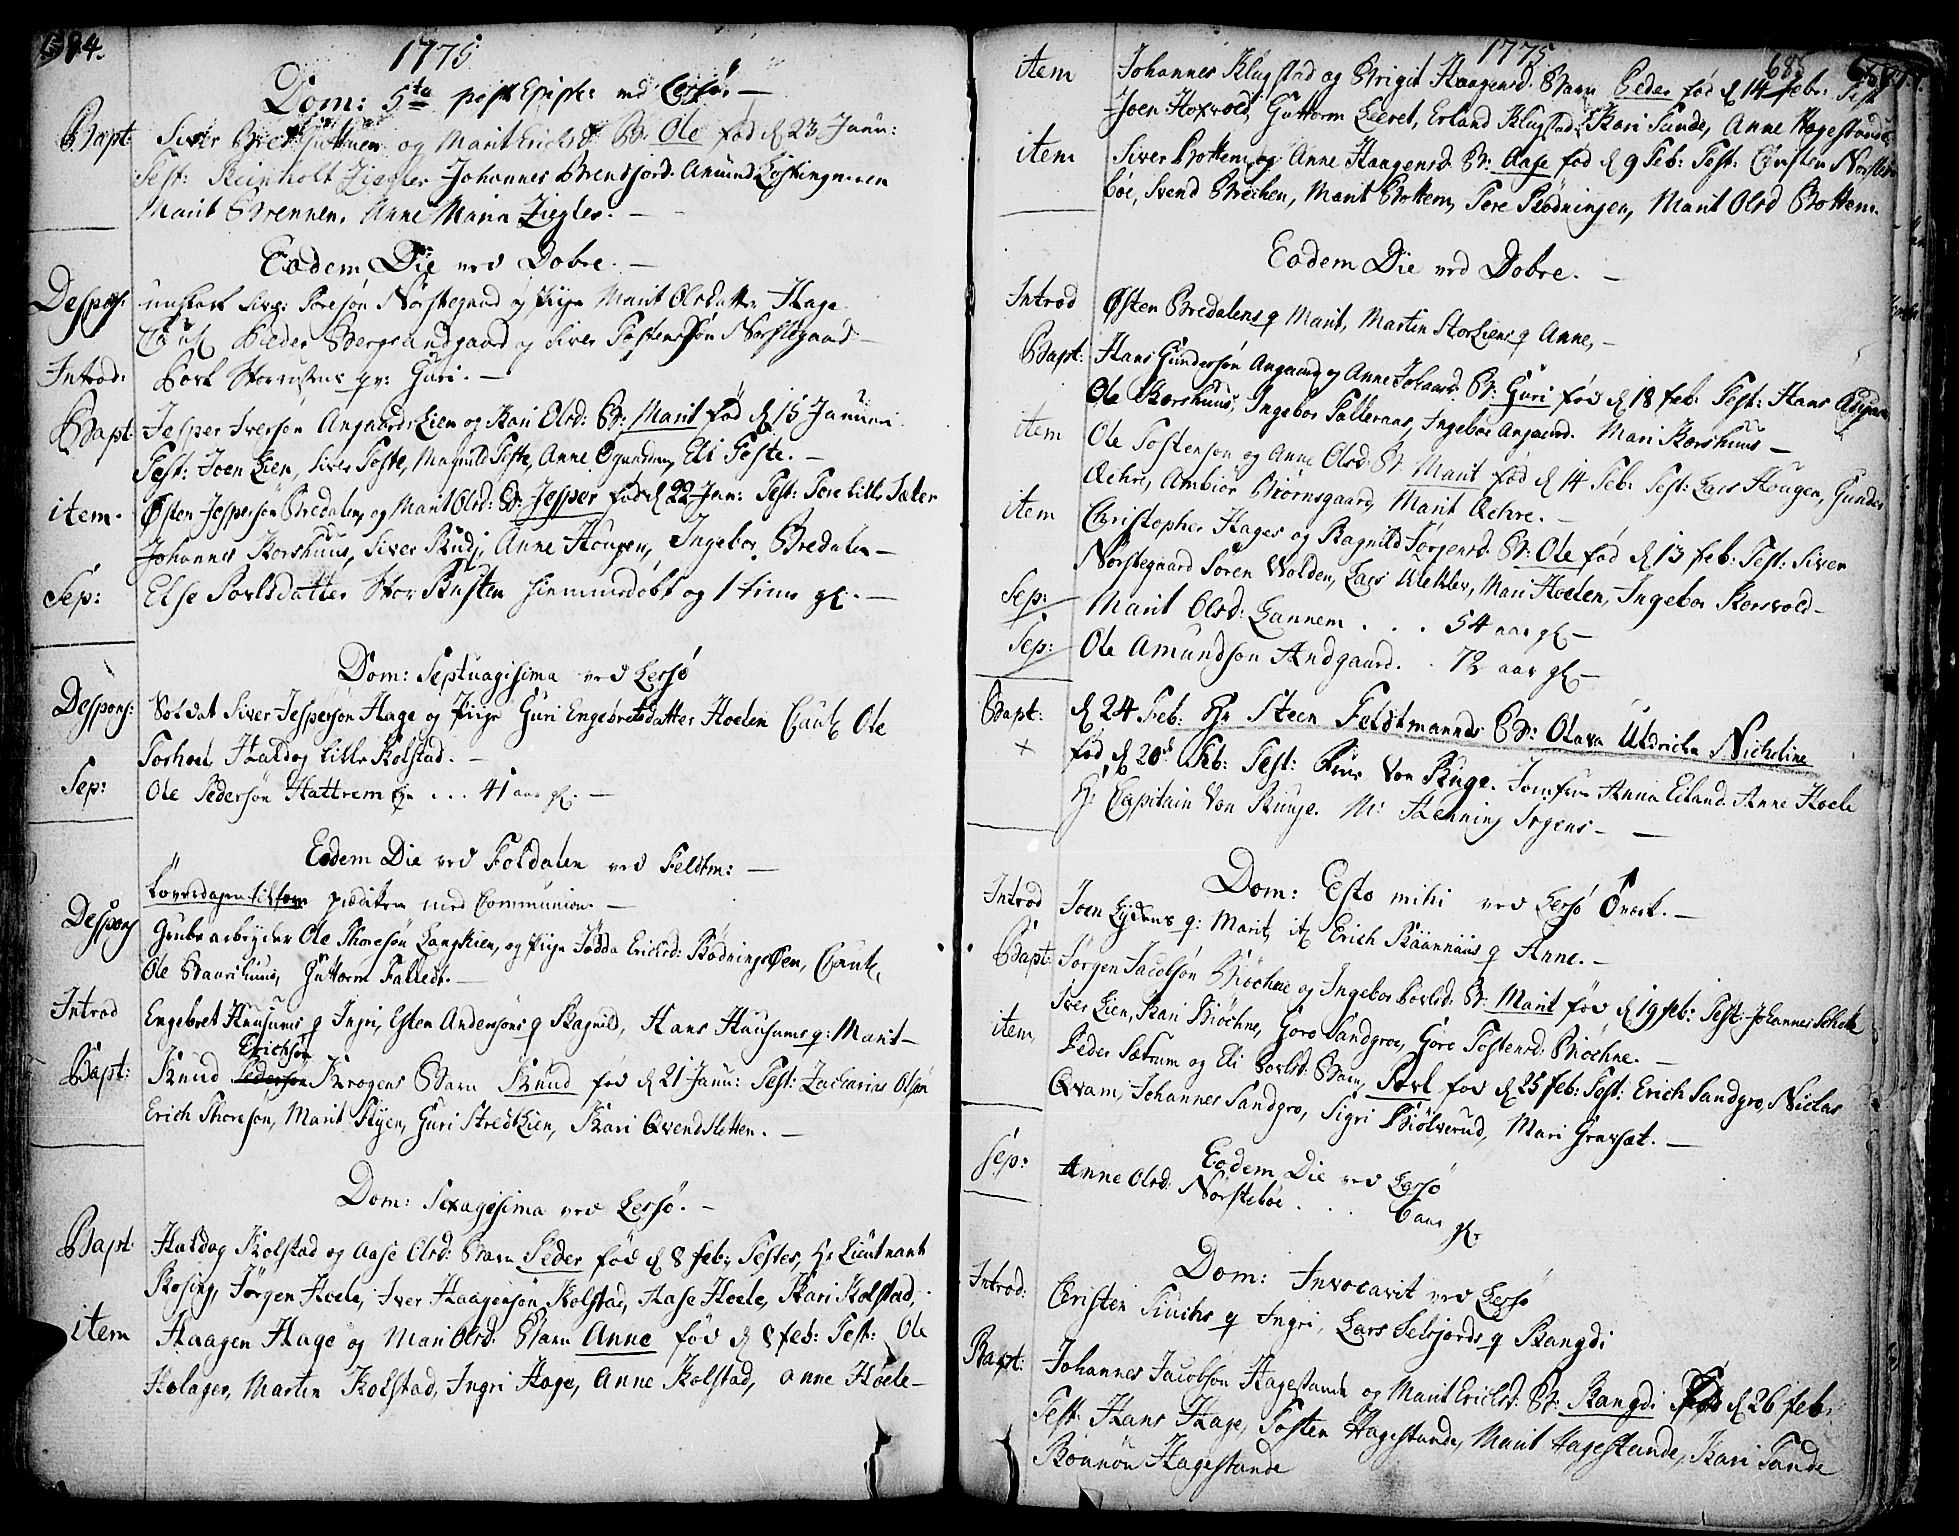 1775
Dom: 5ta post Epiph: ved Lessø. —
Bapt: Siver og Marit Erichsd: B: Ole fød d 23 Janu:
Test: Reinholt Ziegler Johannes Amund
Marit Brennen, Anne Maria Ziegler. —
Eodem Die ved Dobre. —
Despons: Siver Toresøn Norstegaard og Pige Marit Olsdatter Hage
Caut Peder Bergsandgaard og Siver Tostensøn Norstegaard —
Introd: qv: Guri. —
Bapt: Jesper Iversøn AngaardsLien og Kari Olsd: B: Marit fød d 15 Januari
Test: Joen Lien, Siver Tofte, Magnild Tofte, Anne Eli Tofte. —
item. Østen Jespersøn Bredalen og Marit Olsd: B: Jesper fød d 22 Jan: Test: Tore Lille
Johannes Korshuus, Siver Rudj, Anne Hougen, Ingebor Bredalen —
Sep: Else Povlsdatter Stor Rusten hiemmedøbt og 1 time gl. —
Dom: Septuagisima ved Lessø
Despons: Soldat Siver Jespersøn Hage og Pige Guri Engebretsdatter Hoelen Caut Ole
Haldog Lille Kolstad. —
Sep: Ole Pedersøn Hattrem ... 41 aar gl. —
Eodem Die ved Foldalen ved Feldtm: —
præken med Communion. —
Despons Grube arbeyder Ole Thoresøn Langlien, og Pige Jødda Erichsd: Caut,
Ole Guttorm Falledt. —
Introd Engebret Huusums q Ingri, Esten Andersøns q Ragnild, Hans Huusums q: Marit —
Erichsøn
Bapt: Knud Pedersøn Krogens Barn Knud fød d 21 Janu: Test: Zacharias Olsøn
Erich Thoresøn, Marit Guri StredtLien, Kari Qvendsletten. —
Dom: Sexagesima ved Lessø. —
Bapt: Haldog Kolstad og Aase Olsd: Barn Peder fød d 8 feb: Testes, Hr Lieutnant
Rosing, Jørgen Hoele, Iver Haagensøn Kolstad, Aase Hoele, Kari Kolstad,
item Haagen Hage og Mari Olsd: Barn Anne fød d 8 feb: Test: Ole
Holager, Marten Kolstad, Ingri Hage, Anne Kolstad, Anne Hoele —
1775
685
item Johannes Klugstad og Brigit Haagensd: Barn Peder fød d 14 feb: Test
Joen Guttorm Leeret, Erland Klugstad, Kari Sunde, Anne Hagestande
item Siver Bottem og Anne Haagensd: B: Aase fød d 9 Feb: Test: Christen
bøe, Svend Brechen, Marit Bottem, Tore Rødningen, Marit Olsd Bottem.
Eodem Die ved Dobre. —
Introd Østen Bredalens q Marit, Martin StorLiens q Anne, —
Bapt: Hans Gundersøn Angaard og Anne Johansd: B: Guri fød d 18 feb: Test: Hans
Ole Korshuus, Ingebor Ingebor Angaard. Mari Korshuus —
item Ole Tostensøn og Anne Olsd: B: Marit fød d 14 Feb: Test: Lars Hougen, Gunder
Aehre, Ambiør Biørnsgaard, Marit Aehre. —
item Christopher Hages og Ragnild Jørgensd: B: Ole fød d 13 feb: Test: Siver
Norstegaard Søren Volden, Lars Mari Hoelen, Ingebor Korsvold —
Sep: Marit Olsd: Lannem . . . 54 aar gl —
Sep: Ole Amundsøn Andgaard. . 72 aar gl —
Bapt: d 24 Feb: Hr Steen Feldtmands B: Olava Uldricha Nicheline
fød d 20de Feb: Test: Frue Von Krüge. Jomfrue Anna Eiland. Anne Hoele
Hr Capitain Von Krüge. Mr Henning Irgens — —
Dom: Esto mihi ved Lessø Øvert. —
Introd Joen Lydens q: Marit, it Erich q Anne. —
Bapt: Jørgen Jacobsøn Biøchne og Ingebor Povlsd: B: Marit fød d 19 feb: Test: Johannes
Iver Lien, Kari Biøchne, Goro Sandgroe, Goro Tostensd: Biøchne. —
item, Peder Sætrum og Eli Povlsd: Barn Povl fød d 25 feb: Test: Erich Sandgro, Niclas
Qvam, Johannes Sandgro, Sigri Biølverud, Mari Gravsæt. —
Eodem Die ved Lessø
Sep: Anne Olsd: Norstebøe . . . 6 aar gl.
Dom: Invocavit ved Lessø
Introd: Christen q Ingri, Lars Selsjords q Rangdi
Bapt: Johannes Jacobsøn Hagestande og Marit Erichsd: B: Rangdi fød d 26 feb:
Test: Hans Hage, Tosten Hagestande, Marit Hagestande, Kari Sande
Rønnou Hagestande